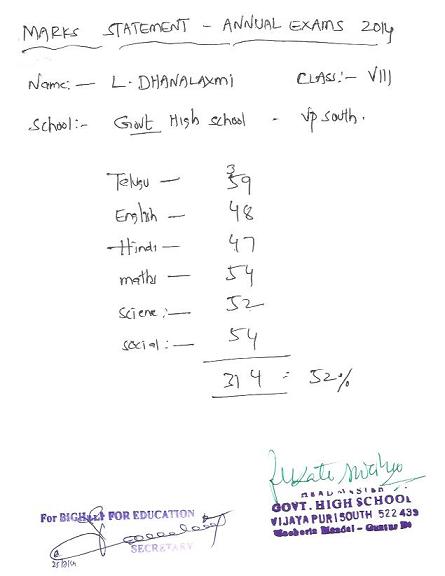 MARKS STATEMENT - ANNUAL EXAMS 2014
Name:- L. DHANALAXMI CLASS:- VIII
School:- Govt High school - VP South.
3
Telugu - 59
English - 48
Hindi - 47
maths - 54
Sciene:- 52
social:- 54
314 = 52%
HEAD MASTER
GOVT. HIGH SCHOOL
VIJAYA PURI SOUTH 522 439
Macherla Mandal - Guntur Dt
For BIGHELP FOR EDUCATION
SECRETARY